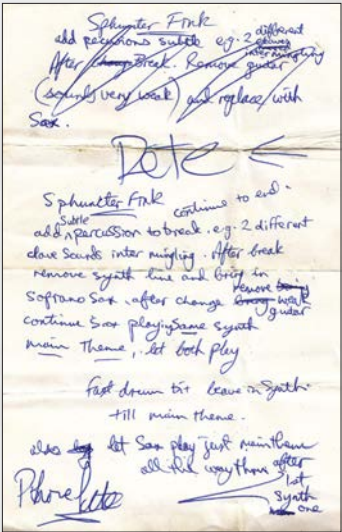 Sphuncter Fink
different
add percussions subtle e.g. 2 claves
intermingling
After change Break. Remove guitar
(sounds very weak) and replace with
Sax.
Pete
Sphuncter Fink
continue to end.
Subtle
add percussion to break. e.g. 2 different
clave sounds inter mingling. After break
remove synth line and bring in
remove being
soprano sax, after change bring weak
guitar
continue Sax playing Same synth
main Theme, let both play
Fast drum bit leave in Synth
till main theme.
also let Sax play just main theme
all the way thru after
1st
synth
one
Phone Pete